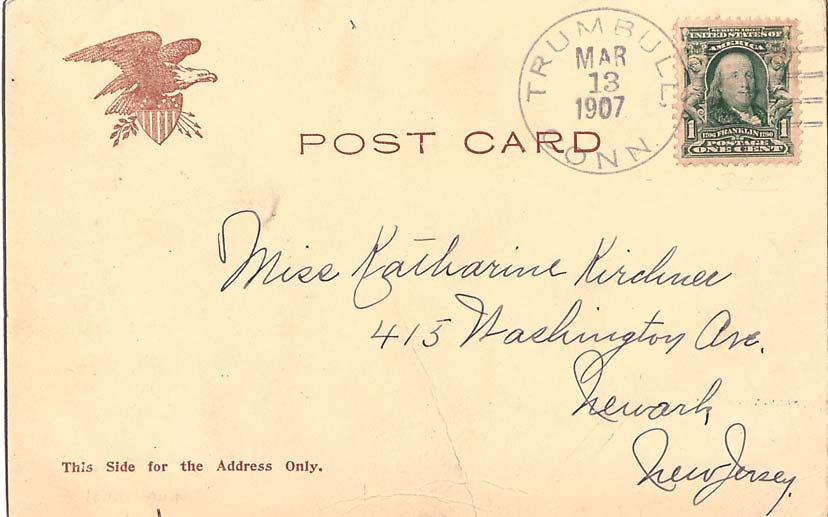 POST CARD
TRUMBULL,
MAR
13
1907
CONN.
SERIES 1902
UNITED STATES OF
AMERICA
1 FRANKLIN 1
POSTAGE
ONE CENT
Miss Katharine Kirchner
415 Washington Ave.
Newark,
New Jersey.
This Side for the Address Only.